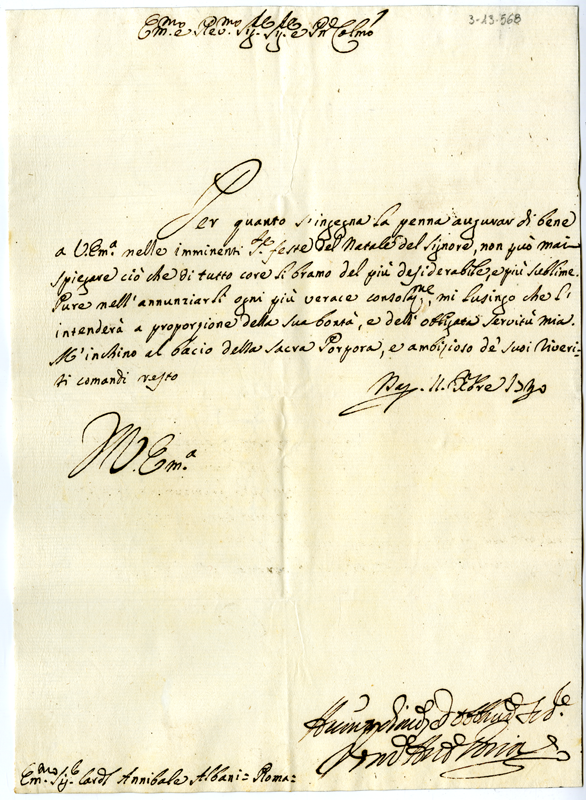 3-13-568
Em.mo e Rev.mo Sig. Sig. e P.rn Colmo
Per quanto s'ingegna la penna augurar di bene
a V. Em.a nelle imminenti S.te feste del Natale del Signore, non può mai
spiegare ciò che di tutto core li bramo del più desiderabile, e più sublime.
Pure nell'annunziarli ogni più verace consolaz.ne, mi lusingo che l'
intenderà a proporzione della sua bontà, e dell'obligata servitù mia.
M'inchino al bacio della Sacra Porpora, e ambizioso de' suoi riveri-
ti comandi resto
11. Xbre
V. Em.a
Em.mo Sig.r Card.l Annibale Albani = Roma =